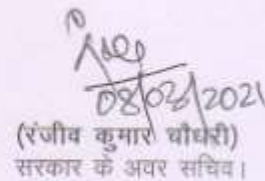 08/02/2021
(रंजीव कुमार चौधरी)
सरकार के अवर सचिव।